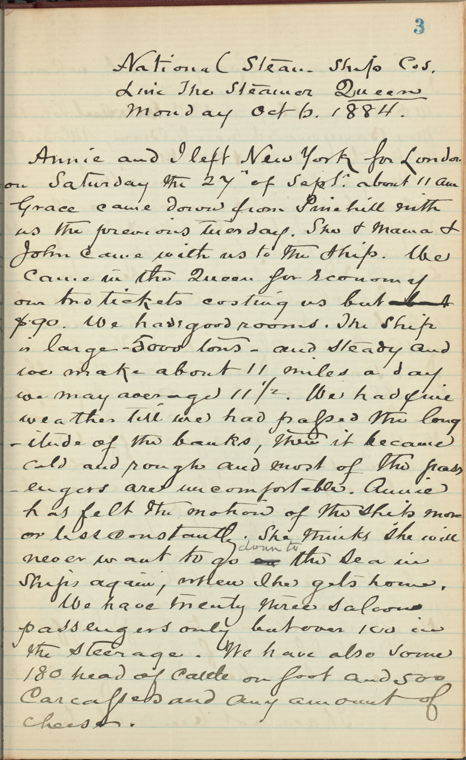 3
National Steam Ship Cos.
Line The Steamer Queen
Monday Oct 6. 1884.
Annie and I left New York for London
on Saturday the 27" of Sept. about 11 am
Grace came down from Pinehill with
us the previous tuesday. She & Mama &
John came with us to the Ship. We
came in the Queen for Economy
our two tickets costing us but but
$90. We have good rooms. The Ship
is large - 5000 tons - and steady and
we make about 11 miles a day
we may average 11 1/2. We had fine
weather till we had passed the long
-itude of the banks, then it became
cold and rough and most of the pass
-engers are uncomfortable. Annie
has felt the motion of the ship more
or less constantly. She thinks she will
never want to go down to the Sea in
Ships again, when she gets home.
We have twenty three saloon
passengers only but over 100 in
the steerage. We have also some
180 head of Cattle on foot and 500
Carcasses and any amount of
cheese.